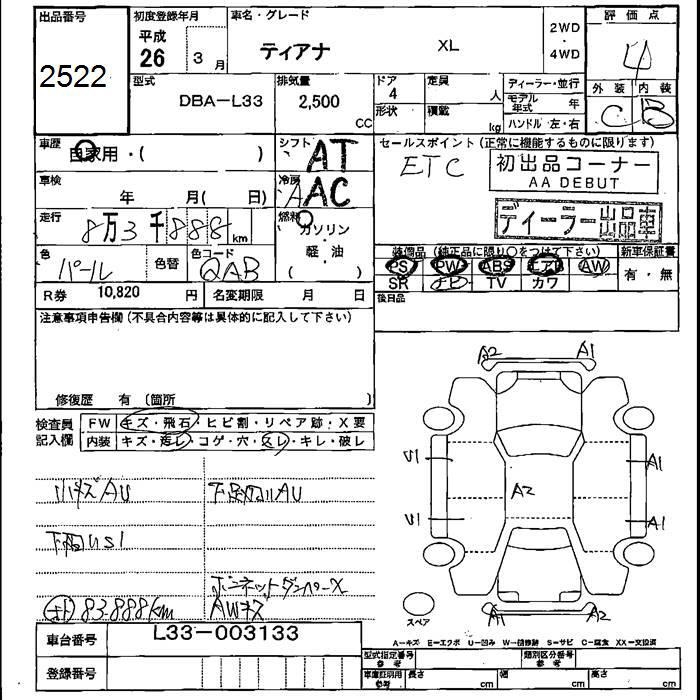 出品番号 初度登録年月 車名・グレード 評価点
平成
26 3 月 ティアナ XL 2WD・4WD 4
2522
型式 排気量 ドア 定員 ディーラー・並行 外装 内装
DBA-L33 2,500 CC 4 人 モデル年式 年 C B
形状 積載 kg ハンドル 左・右
車歴 自家用・( ) シフト AT セールスポイント(正常に機能するものに限ります)
ETC 初出品コーナー
AA DEBUT
車検 年 月( 日) 冷房 AAC
ディーラー出品車
走行 8万3千888km 燃料 ガソリン
軽油
( )
色 パール 色替 色コード QAB 装備品(純正品に限り○をつけて下さい) 新車保証書
PS PW ABS エアB AW 有・無
R券 10,820 円 名変期限 月 日 SR ナビ TV カワ
後日品
注意事項申告欄(不具合内容等は具体的に記入して下さい)
修復歴 有 (箇所 )
検査員記入欄 FW キズ・飛石・ヒビ割・リペア跡・X要
内装 キズ・汚レ・コゲ・穴・スレ・キレ・破レ
A2 A1
U1 A1
A2
U1 A1
A1 A2
小キズAU
ボンネットダンパーX
83.888km AWキズ
スペア
A-キズ E-エクボ U-凹み W-補修跡 S-サビ C-腐食 XX-交換済
車台番号 L33-003133
登録番号
型式指定番号 参考 類別区分番号 参考
車庫証明用 参考 長さ cm 幅 cm 高さ cm